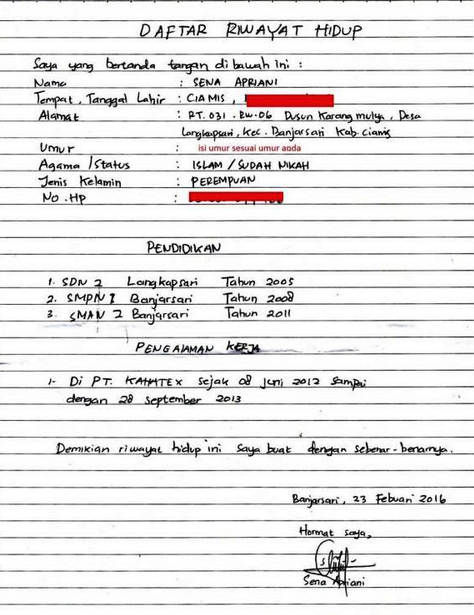 DAFTAR RIWAYAT HIDUP
Saya yang bertanda tangan di bawah ini :
Nama : SENA APRIANI
Tempat, Tanggal Lahir : CIAMIS ,
Alamat : RT. 031 . RW. 06 Dusun Karang mulya , Desa
Langkapsari, Kec. Banjarsari Kab. Ciamis
Umur : isi umur sesuai umur anda
Agama / Status : ISLAM / SUDAH NIKAH
Jenis Kelamin : PEREMPUAN
No . Hp :
PENDIDIKAN
1. SDN 2 Langkapsari Tahun 2005
2. SMPN 1 Banjarsari Tahun 2008
3. SMAN 2 Banjarsari Tahun 2011
PENGALAMAN KERJA
1- Di PT. KAHATEX sejak 08 Juni 2012 Sampai
dengan 28 september 2013
Demikian riwayat hidup ini saya buat dengan sebenar-benarnya.
Banjarsari, 23 Febuari 2016
Hormat saya,
Sena Apriani